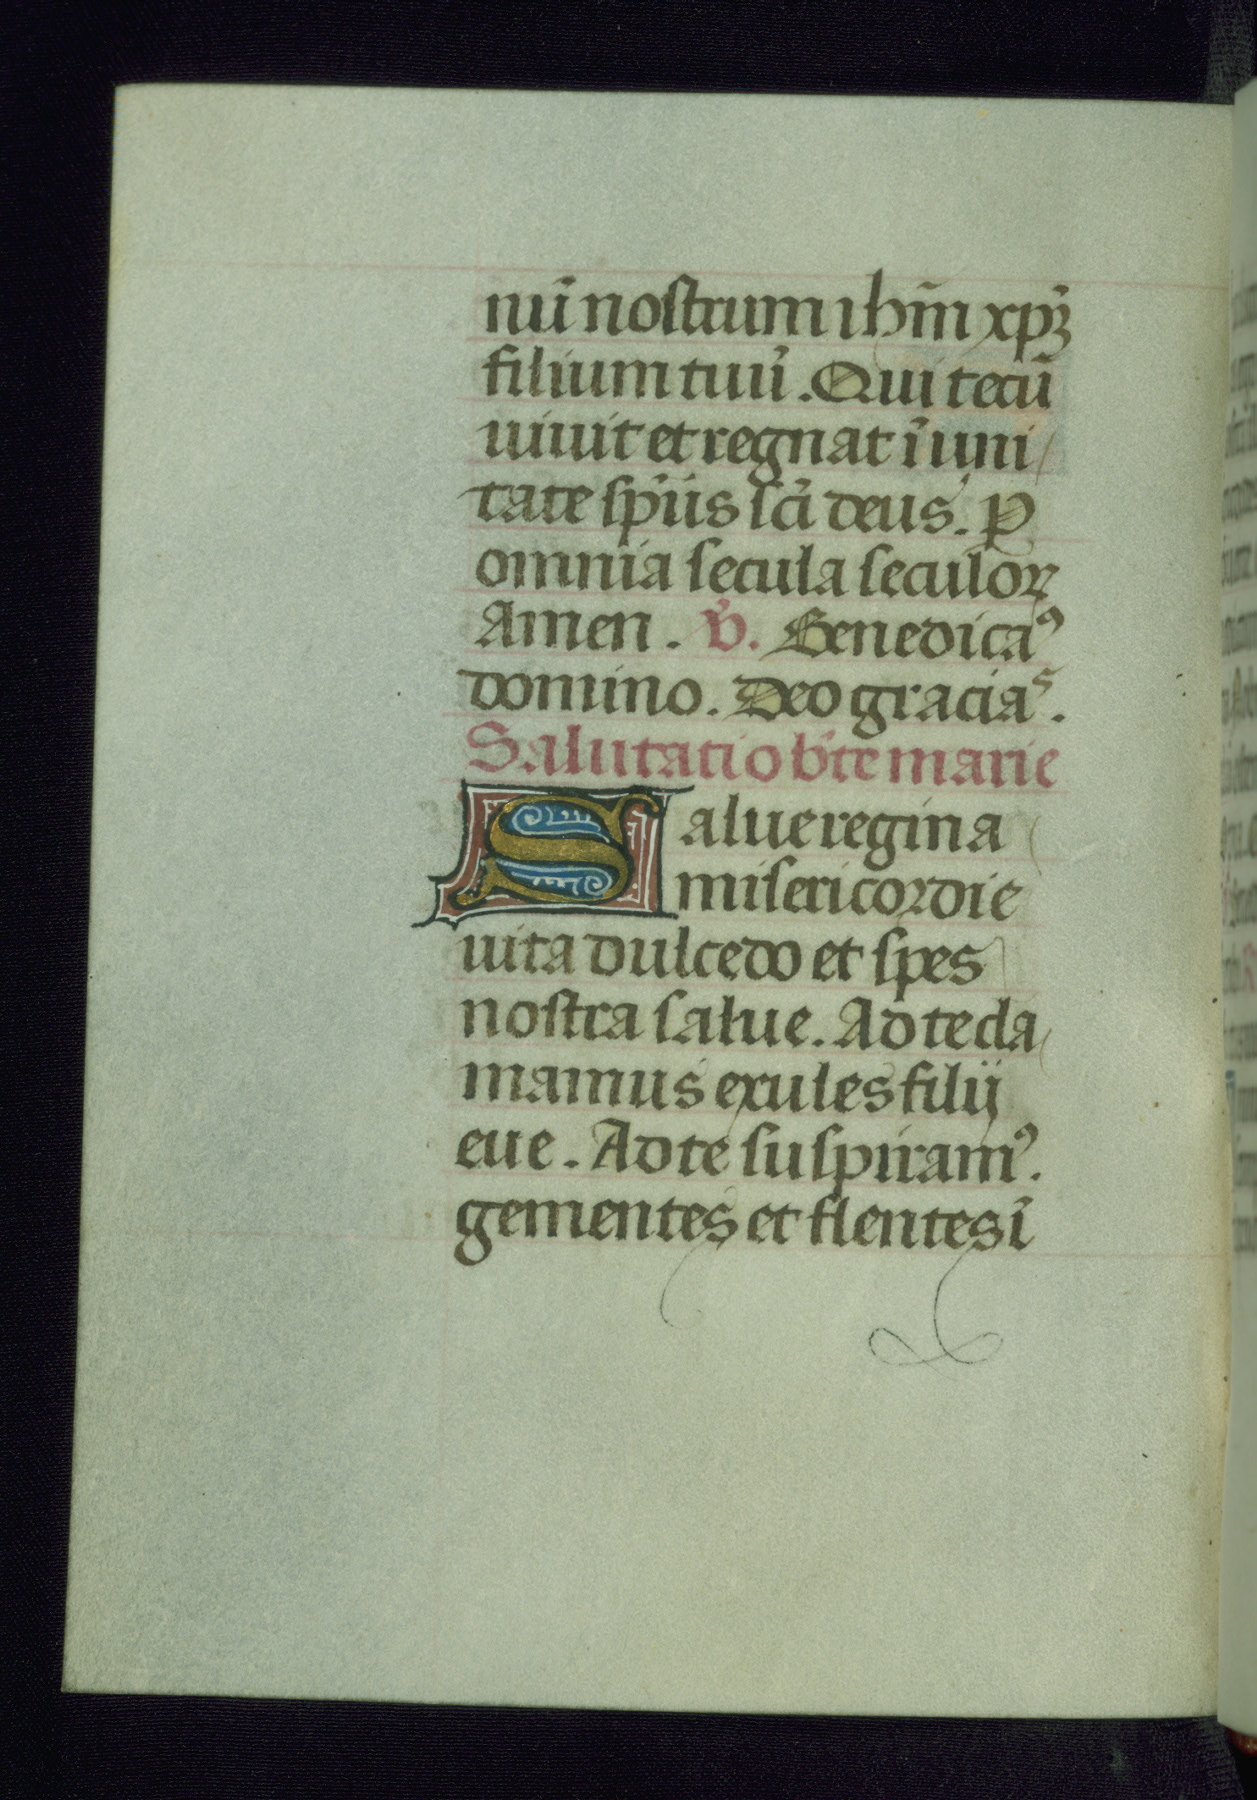 nū nostrum ihm̄ xpꝫ
filium tuū. Qui tecū
uiuit et regnat ī uni
tate sp̄iis sc̄i deus. P
omnia secula seculoꝝ
Amen. v̄. Benedicaꝰ
domino. Deo gracias.
Salutatio bt̄e marie
Salue regina
misericordie
uita dulcedo et spes
nostra salue. Ad te cla
mamus exules filij
eue. Ad te suspiramꝰ.
gementes et flentes ī